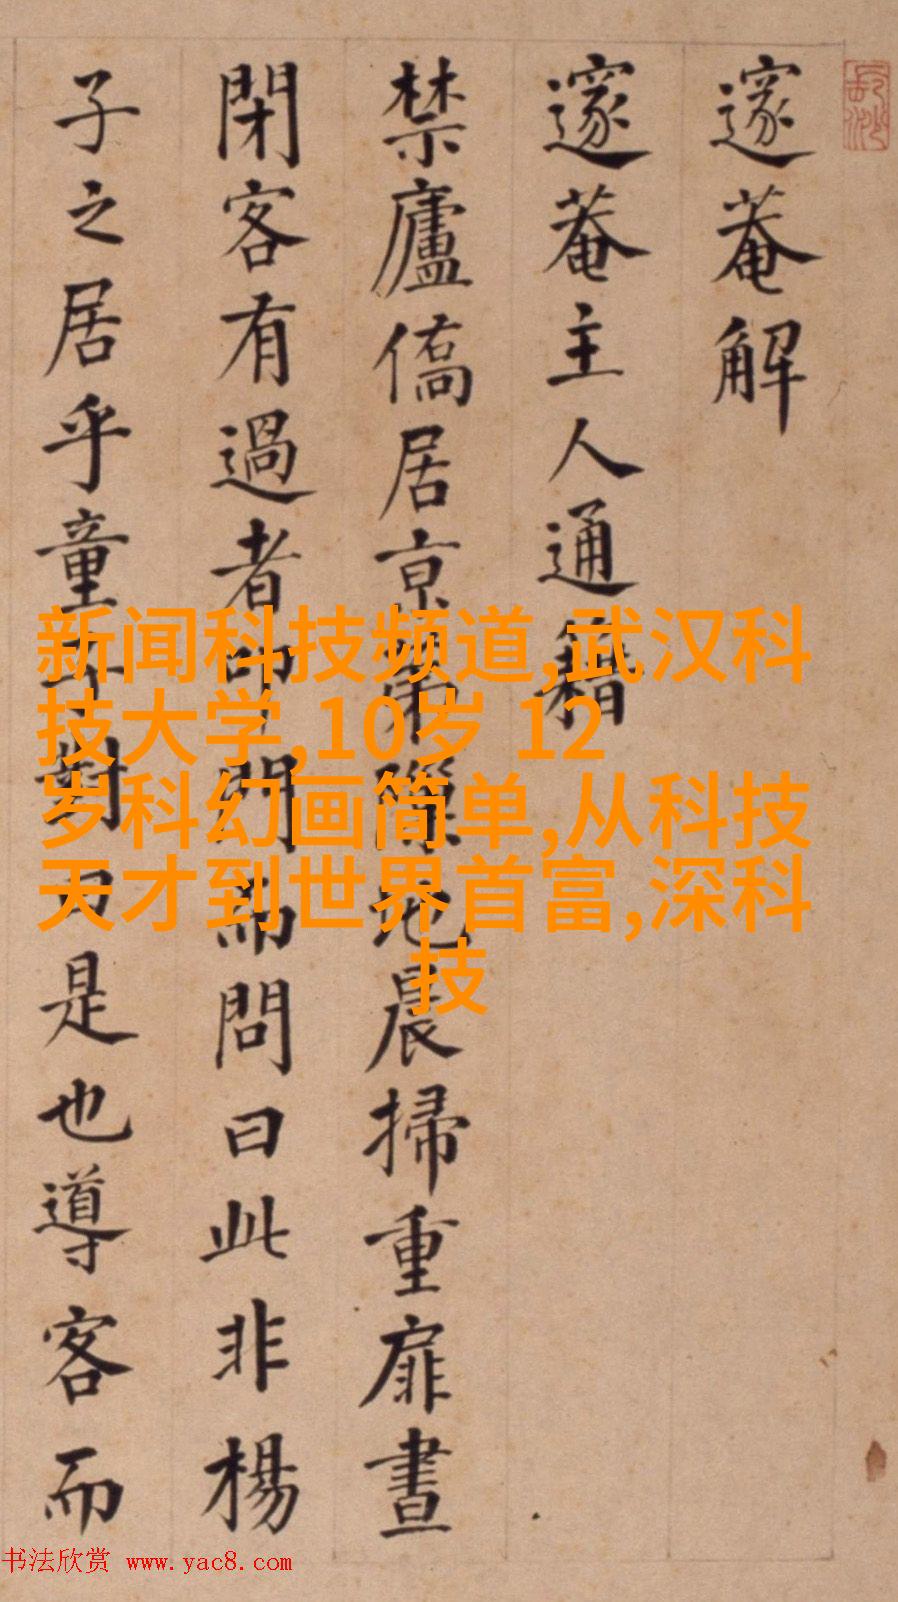 邃菴解
邃菴主人通籍
禁廬僑居京第隙地晨掃重扉晝
閉客有過者叩門而問曰此非楊
子之居乎童子對曰是也導客而
新闻科技频道,武汉科
技大学,10岁 12
岁科幻画简单,从科技
天才到世界首富,深科
技
书法欣赏 www.yac8.com